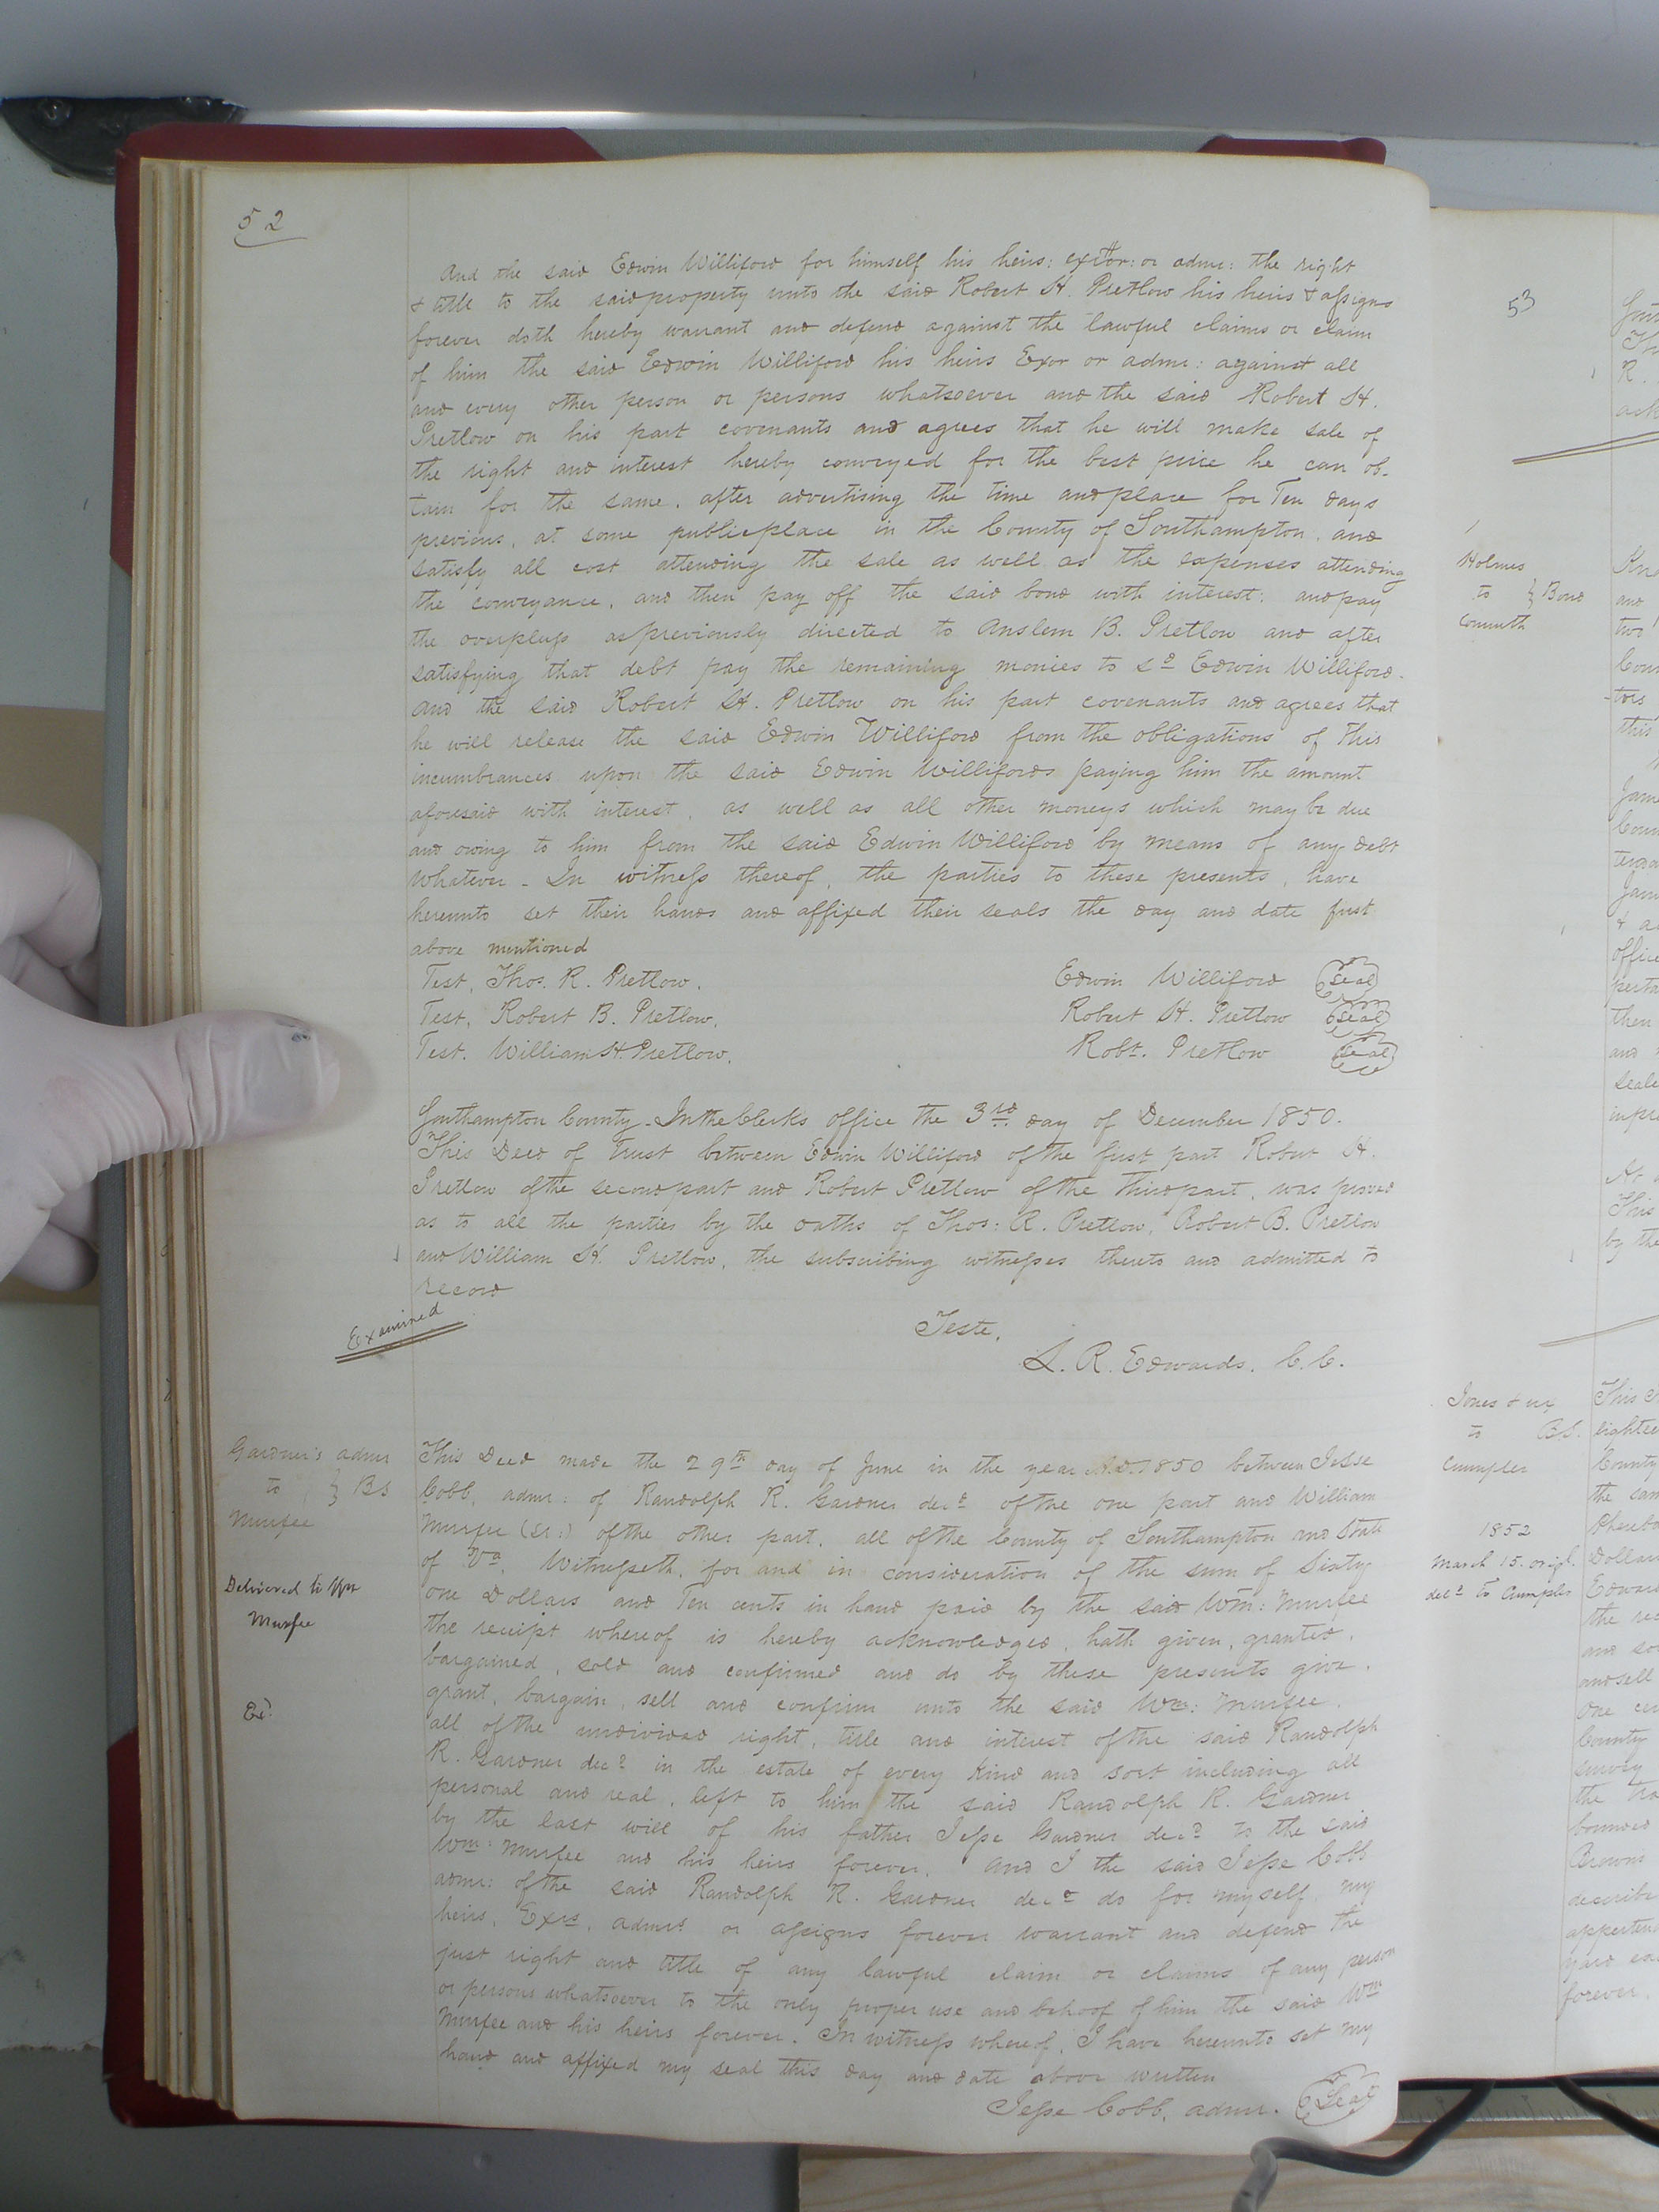 52
And the said Edwin Williford for himself his heirs: extor: or admr: the right
& title to the said property unto the said Robert H. Pretlow his heirs & assigns
forever doth hereby warrant and defend against the lawful claims or claim
of him the said Edwin Williford his heirs Exor or admr: against all
and every other person or persons whatsoever and the said Robert H.
Pretlow on his part covenants and agrees that he will make sale of
the right and interest hereby conveyed for the best price he can ob-
tain for the same, after advertising the time and place for Ten days
previous, at some public place in the County of Southampton, and
satisfy all cost attending the sale as well as the expenses attending
the conveyance, and then pay off the said bond with interest; and pay
the overpluss as previously directed to Anslem B. Pretlow and after
satisfying that debt pay the remaining monies to sd Edwin Williford.
and the said Robert H. Pretlow on his part covenants and agrees that
he will release the said Edwin Williford from the obligations of This
incumbrances upon the said Edwin Willifords paying him the amount
aforesaid with interest, as well as all other moneys which may be due
and owing to him from the said Edwin Williford by means of any debt
whatever - In witness thereof, the parties to these presents, have
hereunto set their hands and affixed their seals the day and date first
above mentioned
Test, Thos. R. Pretlow. Edwin Williford Seal
Test, Robert B. Pretlow. Robert H. Pretlow Seal
Test. William H. Pretlow. Robt. Pretlow Seal
Southampton County - In the Clerks office the 3rd day of December 1850.
This Deed of Trust between Edwin Williford of the first part Robert H.
Pretlow of the second part and Robert Pretlow of the third part, was proved
as to all the parties by the oaths of Thos: R. Pretlow, Robert B. Pretlow
and William H. Pretlow, the subscribing witnesses thereto and admitted to
record
Examined
Teste,
L. R. Edwards. C. C.
Gardner's admr
to } BS
Murfee
Delivered to Wm
Murfee
Ex.
This Deed made the 29th day of June in the year A.D. 1850 between Jesse
Cobb, admr: of Randolph R. Gardner decd of the one part and William
Murfee (Sr:) of the other part, all of the County of Southampton and State
of Va. Witnesseth, for and in consideration of the sum of Sixty
one Dollars and Ten cents in hand paid by the said Wm: Murfee
the receipt whereof is hereby acknowledged, hath given, granted,
bargained, sold and confirmed and do by these presents give,
grant, bargain, sell and confirm unto the said Wm: Murfee.
all of the undivided right, title and interest of the said Randolph
R. Gardner decd in the estate of every kind and sort including all
personal and real, left to him the said Randolph R. Gardner
by the last will of his father Jesse Gardner decd to the said
Wm: Murfee and his heirs forever. And I the said Jesse Cobb
admr: of the said Randolph R. Gardner decd do for myself, my
heirs, Exrs, admrs or assigns forever warrant and defend the
just right and title of any lawful claim or claims of any person
or persons whatsoever to the only proper use and behoof of him the said Wm
Murfee and his heirs forever. In witness whereof, I have hereunto set my
hand and affixed my seal this day and date above written
Jesse Cobb, admr. Seal
53
R.
Holmes
to } Bond
Commth
and
two
-tors
this
then
and
by the
Jones & ux
to BS.
Crumpler
1852
March 15. origl.
deld to Crumpler
This
County
the sam
Dollars
Edward
and sell
One
County
survey
bounded
Browns
describe
yard
forever.